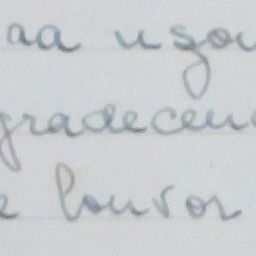 aa uzou
gradeceu
e louvor